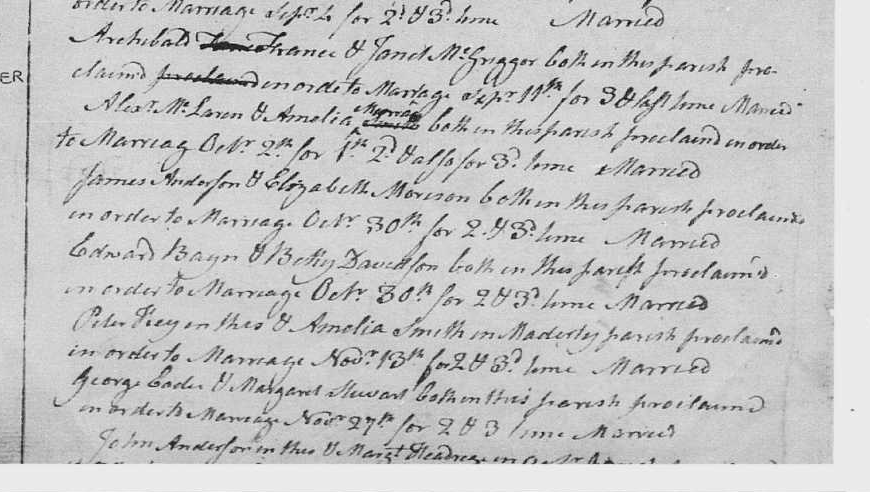 order to Marriage Sepr 4 for 2d & 3d time Married
Archibald France & Janet McGriggor both in this parish pro-
claimd proclaimd in order to Marriage Sepr 11th for 3 & last time Married
ER
Alexr McLaren & Amelia both in this parish proclaimd in order
to Marriag Octr 2th for 1th 2d & also for 3d time Married
James Anderson & Elizabeth Morison both in this parish proclaimd
in order to Marriage Octr 30th for 2 & 3d time Married
Edward Bayn & Betty Davidson both in this parish proclaimd
in order to Marriage Octr 30th for 2 & 3d time Married
Peter in this & Amelia Smith in Maderty parish proclaimd
in order to Marriage Novr 13th for 2 & 3d time Married
George Eadie & Margaret Stewart both in this parish proclaimd
in order to Marriage Novr 27th for 2 & 3 time Married
John Anderson in this & Margt in